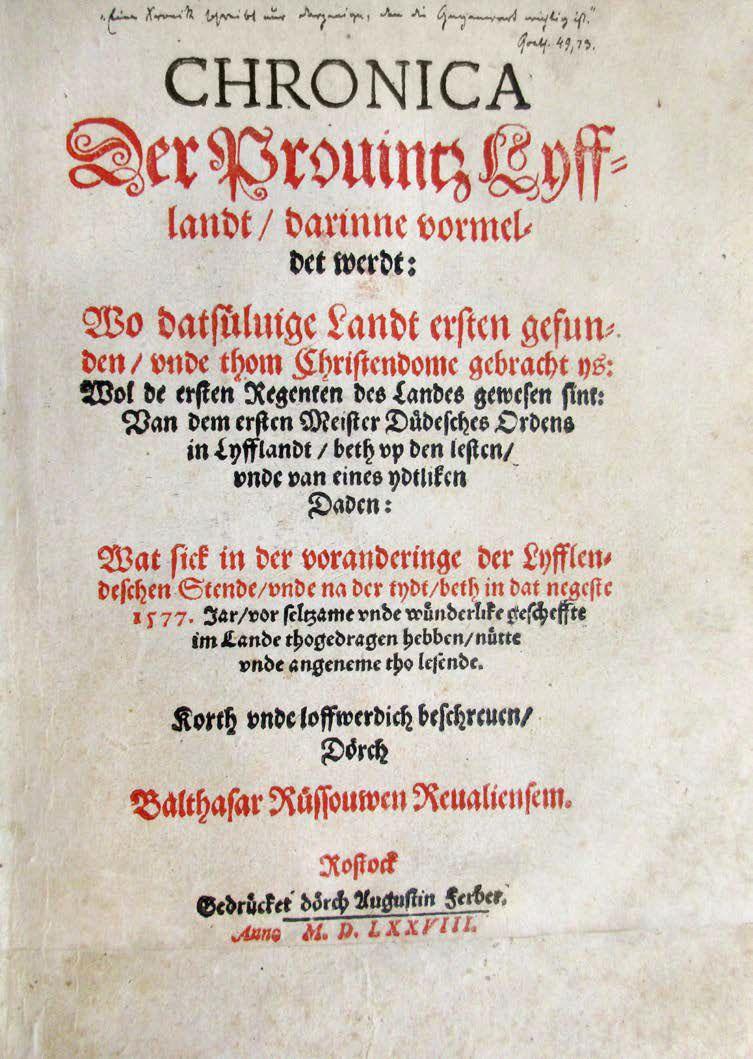 „Eine Kronik schreibt nur derjenige, dem die Gegenwart wichtig ist.“
Goeth. 49,73.
CHRONICA
Der Prouintz Lyff-
landt / darinne vormel-
det werdt:
Wo datsüluige Landt ersten gefun-
den / vnde thom Christendome gebracht ys:
Wol de ersten Regenten des Landes gewesen sint:
Van dem ersten Meister Düdesches Ordens
in Lyfflandt / beth vp den lesten /
vnde van eines ydtliken
Daden:
Wat sick in der voranderinge der Lyfflen-
deschen Stende / vnde na der tydt / beth in dat negeste
1577. Jar / vor seltzame vnde wünderlike gescheffte
im Lande thogedragen hebben / nütte
vnde angeneme tho lesende.
Korth vnde loffwerdich beschreuen /
Dörch
Balthasar Rüssouwen Reualiensem.
Rostock
Gedrücket dörch Augustin Ferber.
Anno M. D. LXXVIII.